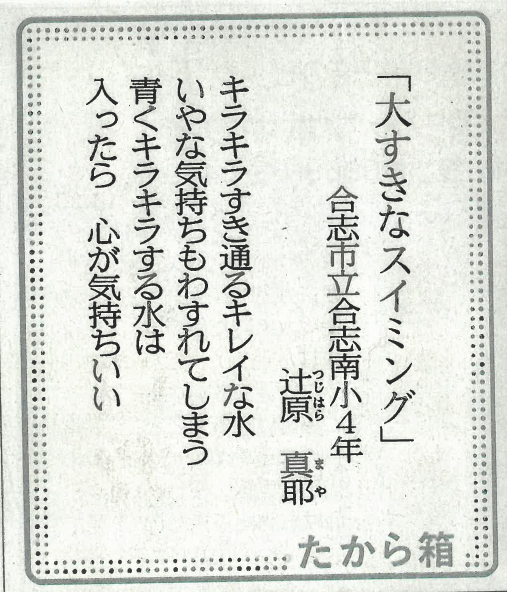 「大すきなスイミング」
合志市立合志南小4年
辻原　真耶
つじはら　まや
キラキラすき通るキレイな水
いやな気持ちもわすれてしまう
青くキラキラする水は
入ったら　心が気持ちいい
たから箱